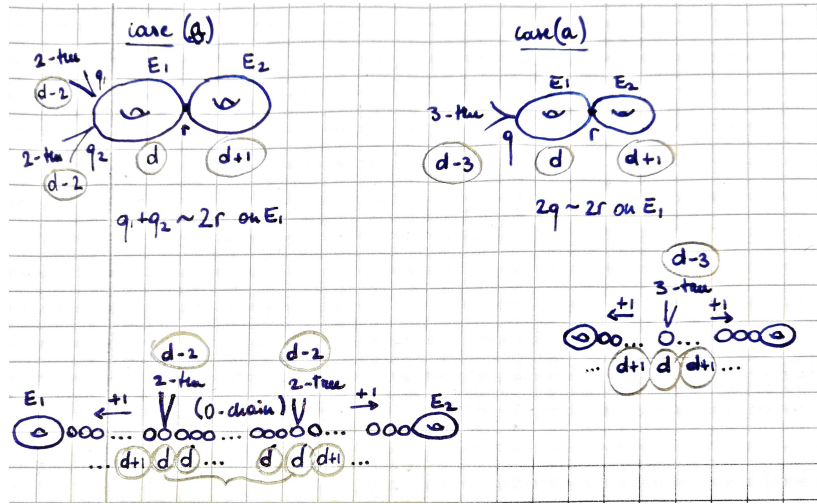 case (b)
2-tree q₁ E₁ E₂
d-2
2-tree q₂ r
d-2 d d+1
q₁+q₂ ~ 2r on E₁
case (a)
E₁ E₂
3-tree
q r
d-3 d d+1
2q ~ 2r on E₁
d-3
3-tree
+1 +1
... ...
... d+1 d d+1 ...
d-2 d-2
E₁ 2-tree 2-tree E₂
+1 (0-chain) +1
... ... ... ...
... d+1 d d ... d d d+1 ...